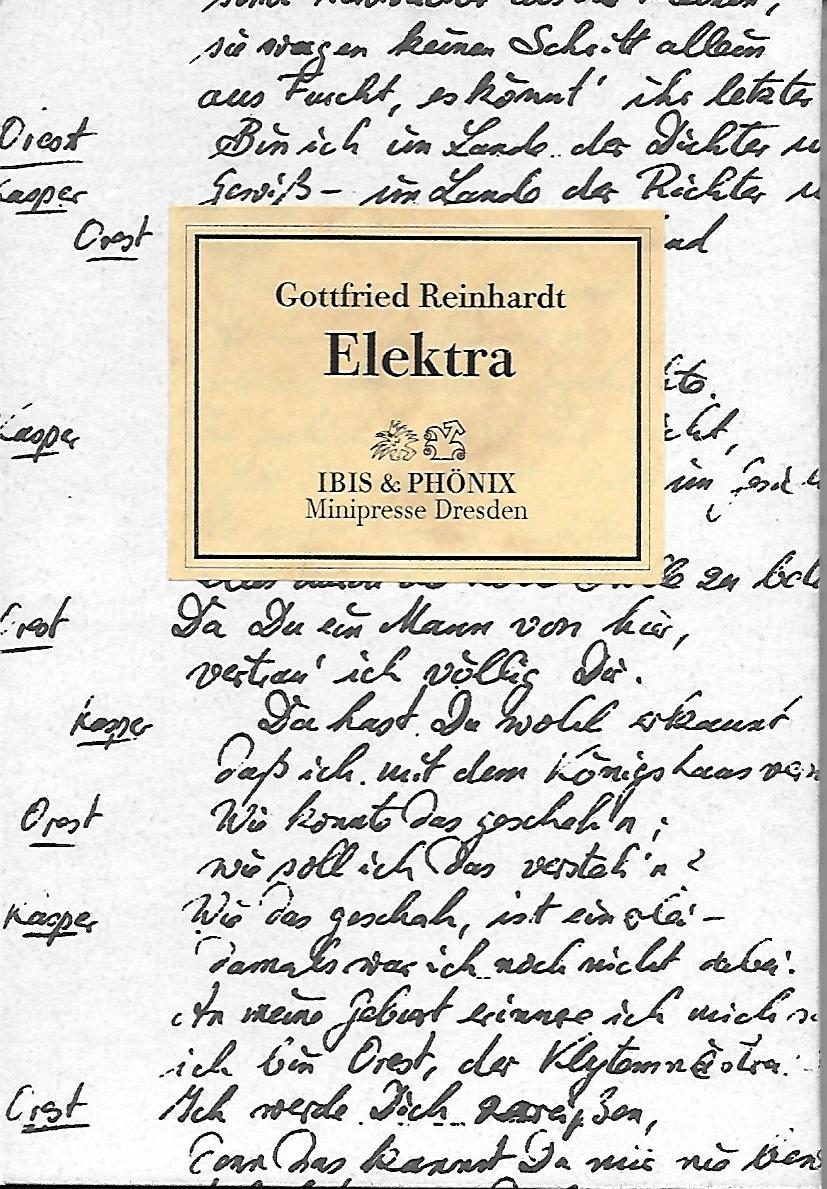 sie wagen keinen Schritt allein
aus Furcht, es könnt' ihr letzter
Orest Bin ich im Lande der Dichter u
Kasper Gewiß – im Lande der Richter u
Orest nd
Gottfried Reinhardt
Elektra
IBIS & PHÖNIX
Minipresse Dresden
Kasper
im Gesi
Orest Da Du ein Mann von hier,
vertrau' ich völlig Dir.
Kasper Da hast Du wohl erkannt
daß ich mit dem Königshaus ver
Orest Wie konnte das gescheh'n;
wie soll ich das versteh'n?
Kasper Wie das geschah, ist einerlei –
damals war ich noch nicht dabei.
An meine Geburt erinnre ich mich
ich bin Orest, der Klytemnästra
Orest Ich werde Dich zerreißen,
denn das kannst Du mir nie